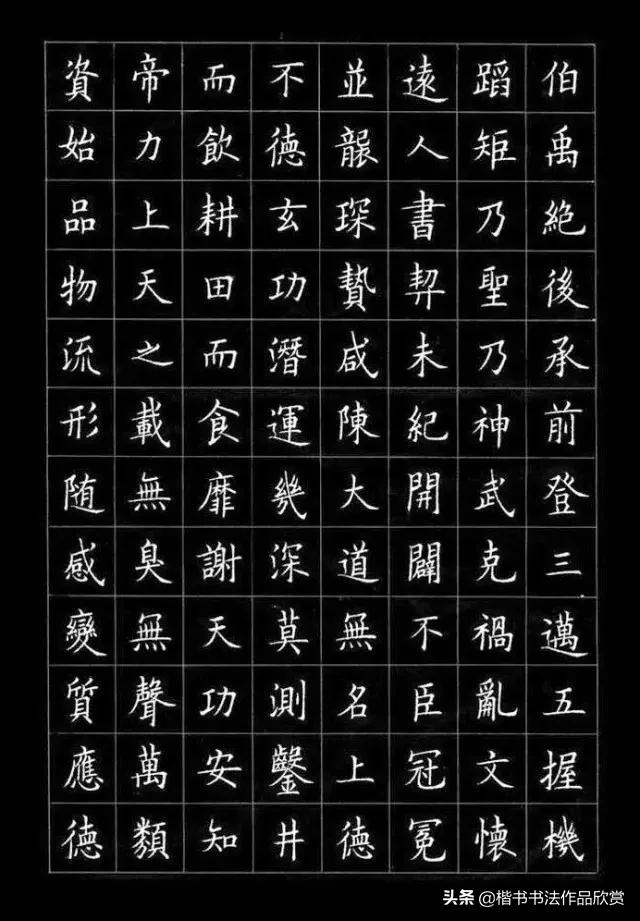 伯禹絶後承前登三邁五握機
蹈矩乃聖乃神武克禍亂文懷
遠人書契未紀開闢不臣冠冕
並襲琛贄咸陳大道無名上德
不德玄功潛運幾深莫測鑿井
而飲耕田而食靡謝天功安知
帝力上天之載無臭無聲萬類
資始品物流形随感變質應德
头条@楷书书法作品欣赏